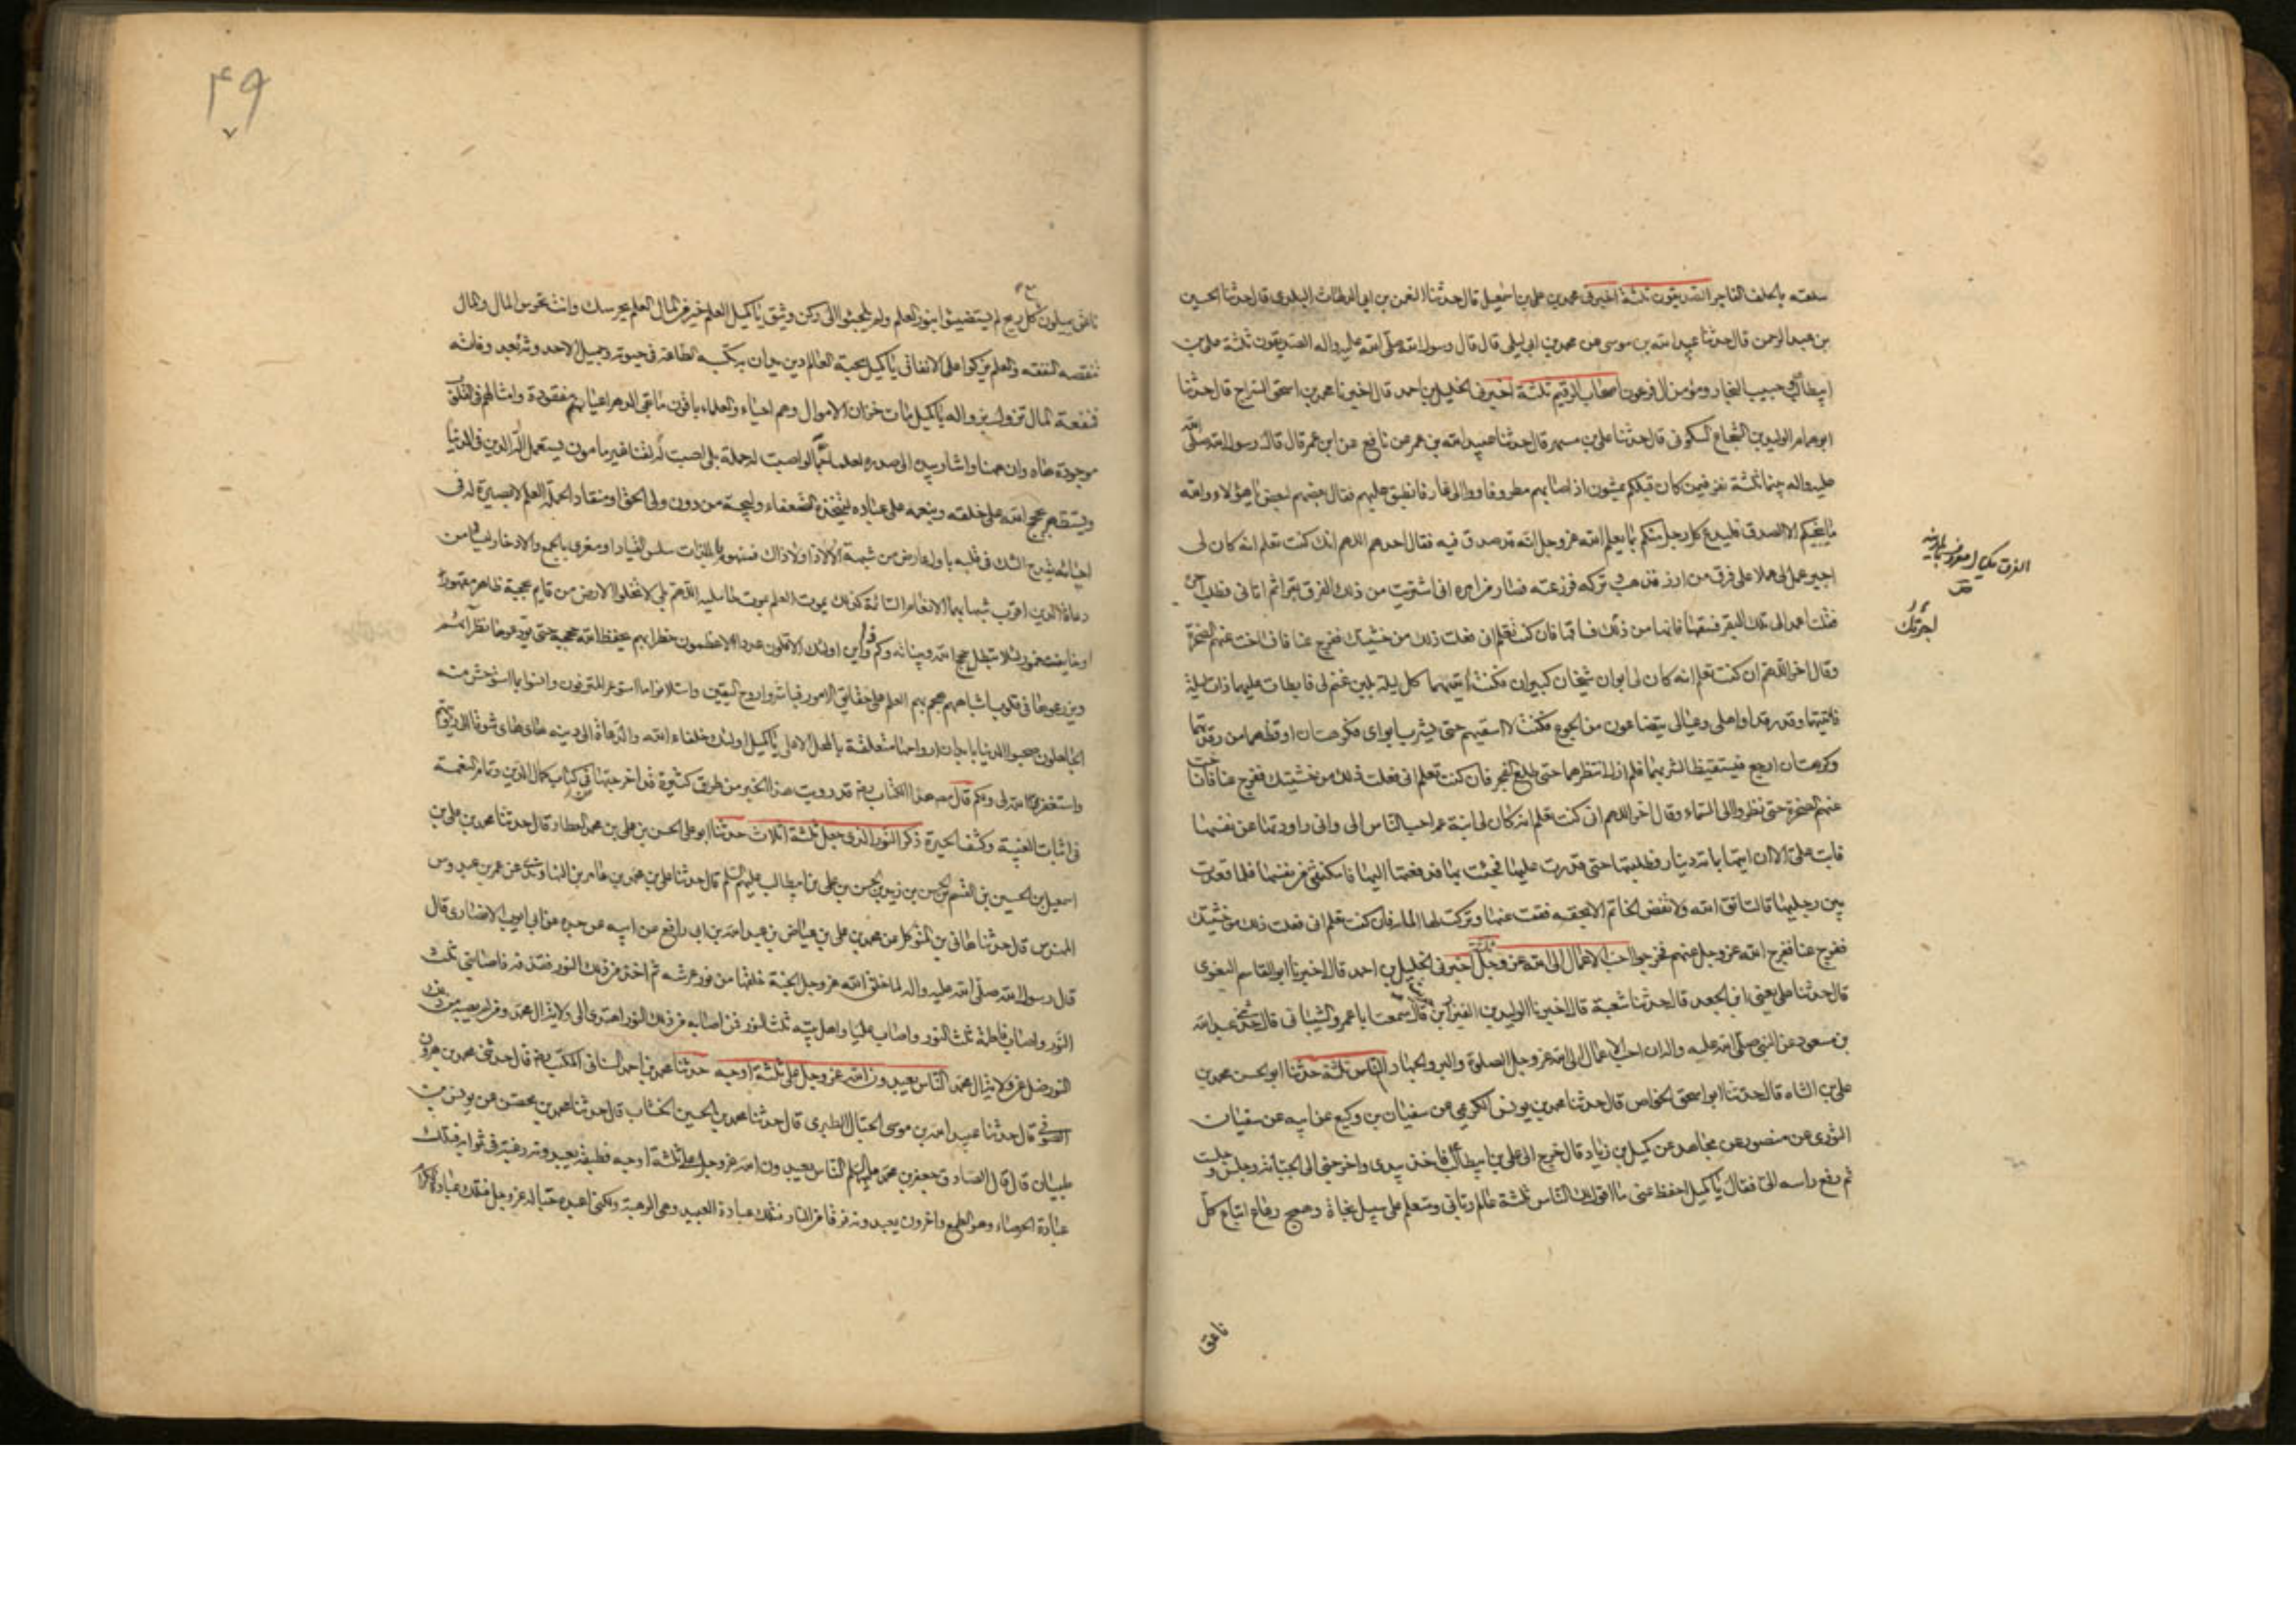 سلعته بالحلف الفاجر الصديقون ثلثة اخبرنى محمد بن على بن اسمعيل قال حدثنا النعمن بن ابى الدلهاث البلدى قال حدثنا الحسين
بن عبد الرحمن قال حدثنا عبيد الله بن موسى عن محمد بن ابى ليلى قال قال رسول الله صلى الله عليه واله الصديقون ثلثة على بن
ابيطالب وحبيب النجار ومؤمن ال فرعون اصحاب الرقيم ثلثة اخبرنى الخليل بن احمد قال اخبرنا محمد بن اسحق السراج قال حدثنا
ابو همام الوليد بن الشجاع السكونى قال حدثنا على بن مسهر قال حدثنا عبيد الله بن عمر عن نافع عن ابن عمر قال قال رسول الله صلى الله
عليه واله بينما ثلثة نفر فيمن كان قبلكم يمشون اذ اصابهم مطر فاووا الى غار فانطبق عليهم فقال بعضهم لبعض يا هؤلاء والله
ما ينجيكم الا الصدق فليدع كل رجل منكم بما يعلم الله عز وجل انه قد صدق فيه فقال احدهم اللهم ان كنت تعلم انه كان لى
اجير عمل لى عملا على فرق من ارز فذهب وتركه فزرعته فصار من امره انى اشتريت من ذلك الفرق بقرا ثم اتانى فطلب اجره
فقلت اعمد الى تلك البقر فسقها فانها من ذلك فساقها فان كنت تعلم انى فعلت ذلك من خشيتك ففرج عنا فانساخت عنهم الصخرة
وقال اخر اللهم ان كنت تعلم انه كان لى ابوان شيخان كبيران فكنت اتيهما كل ليلة بلبن غنم لى فابطات عليهما ذات ليلة
فاتيتهما وقد رقدا واهلى وعيالى يتضاغون من الجوع فكنت لا اسقيهم حتى يشرب ابواى فكرهت ان اوقظهما من رقدتهما
وكرهت ان ارجع فيستيقظا لشربهما فلم ازل انتظرهما حتى طلع الفجر فان كنت تعلم انى فعلت ذلك من خشيتك ففرج عنا فانساخت
عنهم الصخرة حتى نظروا الى السماء وقال اخر اللهم ان كنت تعلم انه كان لى ابنة عم احب الناس الى وانى راودتها عن نفسها
فابت على الا ان اتيها بماة دينار فطلبتها حتى قدرت عليها فجئت بها فدفعتها اليها فامكنتنى من نفسها فلما قعدت
بين رجليها قالت اتق الله ولا تفض الخاتم الا بحقه فقمت عنها وتركت لها الماة فان كنت تعلم انى فعلت ذلك من خشيتك
ففرج عنا ففرج الله عز وجل عنهم فخرجوا احب الاعمال الى الله عز وجل ثلثة اخبرنى الخليل بن احمد قال اخبرنا ابو القاسم البغوى
قال حدثنا على يعنى ابن الجعد قال حدثنا شعبة قال اخبرنا الوليد بن العيزار قال سمعت ابا عمرو الشيبانى قال حدثنى عبد الله
بن مسعود عن النبى صلى الله عليه واله ان احب الاعمال الى الله عز وجل الصلوة والبر والجهاد الناس ثلثة حدثنا ابو الحسن محمد بن
على بن الشاه قال حدثنا ابو اسحق الخواص قال حدثنا محمد بن يونس الكريمى عن سفيان بن وكيع عن ابيه عن سفيان
الثورى عن منصور عن مجاهد عن كميل بن زياد قال خرج الى على بن ابيطالب فاخذ بيدى واخرجنى الى الجبان وجلس وجلست
ثم رفع راسه الى فقال يا كميل احفظ عنى ما اقول لك الناس ثلثة عالم ربانى ومتعلم على سبيل نجاة وهمج رعاع اتباع كل
ناعق
الفرق مكيال معروف بالمدينة
٤٩
ناعق يميلون مع كل ريح لم يستضيئوا بنور العلم ولم يلجئوا الى ركن وثيق يا كميل العلم خير من المال العلم يحرسك وانت تحرس المال والمال
تنقصه النفقه والعلم يزكوا على الانفاق يا كميل محبة العالم دين يدان به تكسبه الطاعة فى حيوته وجميل الاحدوثه بعد وفاته
فمنفعة المال تزول بزواله يا كميل مات خزان الاموال وهم احياء والعلماء باقون ما بقى الدهر اعيانهم مفقودة وامثالهم فى القلوب
موجودة هاه وان ههنا واشار بيده الى صدره لعلما جما لو اصبت له حملة بلى اصبت له لقنا غير مامون يستعمل الة الدين فى الدنيا
ويستظهر بحجج الله على خلقه وبنعمه على عباده ليتخذه الضعفاء وليجة من دون ولى الحق او منقاد الحملة العلم لا بصيرة له فى
احنائه يقدح الشك فى قلبه باول عارض من شبهة الا لا ذا ولا ذاك فمنهوم باللذات سلس القياد او مغرى بالجمع والادخار ليسا من
دعاة الدين اقرب شبها بهما الانعام السائمة كذلك يموت العلم بموت حامليه اللهم بلى لا تخلوا الارض من قايم بحجة ظاهر مشهور
او خايف مغمور لئلا تبطل حجج الله وبيناته وكم ذا واين اولئك الاقلون عددا الاعظمون خطرا بهم يحفظ الله حججه حتى يودعوها نظرائهم
ويزرعوها فى قلوب اشباههم هجم بهم العلم على حقايق الامور فباشروا روح اليقين واستلانوا ما استوعر المترفون وانسوا بما استوحش منه
الجاهلون صحبوا الدنيا بابدان ارواحها متعلقة بالمحل الاعلى يا كميل اولئك خلفاء الله والدعاة الى دينه هاى هاى شوقا الى رؤيتهم
واستغفر الله لى ولكم قال مصنف هذا الكتاب رضه قد رويت هذا الخبر من طرق كثيرة قد اخرجتها فى كتاب كمال الدين وتمام النعمة
فى اثبات الغيبة وكشف الحيرة ذكر النور الذى جعل ثلثة اثلاث حدثنا ابو على الحسن بن على بن محمد العطار قال حدثنا محمد بن على بن
اسمعيل بن الحسين بن القسم بن الحسن بن زيد بن الحسن بن على بن ابيطالب عليهم السلم قال حدثنا على بن محمد بن عامر بن النهاوندى عن عمر بن عبدوس
المهندس قال حدثنا هانى بن المتوكل عن محمد بن على بن عياض بن عبد الله بن ابى رافع عن ابيه عن جده عن ابى ايوب الانصارى قال
قال رسول الله صلى الله عليه واله لما خلق الله عز وجل الجنة خلقها من نور عرشه ثم اخذ من ذلك النور فقذفه فاصابنى ثلث
النور واصاب فاطمة ثلث النور واصاب عليا واهل بيته ثلث النور فمن اصابه من ذلك النور اهتدى الى ولاية ال محمد ومن لم يصبه من ذلك
النور ضل عن ولاية ال محمد الناس يعبدون الله عز وجل على ثلثة اوجه حدثنا محمد بن احمد السنانى المكتب رضه قال حدثنى محمد بن هرون
الصوفى قال حدثنا عبيد الله بن موسى الحبال الطبرى قال حدثنا محمد بن الحسين الخشاب قال حدثنا محمد بن محصن عن يونس بن
ظبيان قال قال الصادق جعفر بن محمد عليهما السلم ان الناس يعبدون الله عز وجل على ثلثة اوجه فطبقة يعبدونه رغبة فى ثوابه فتلك
عبادة الحرصاء وهو الطمع واخرون يعبدونه فرقا من النار فتلك عبادة العبيد وهى الرهبة ولكنى اعبده حبا له عز وجل فتلك عبادة الكرام